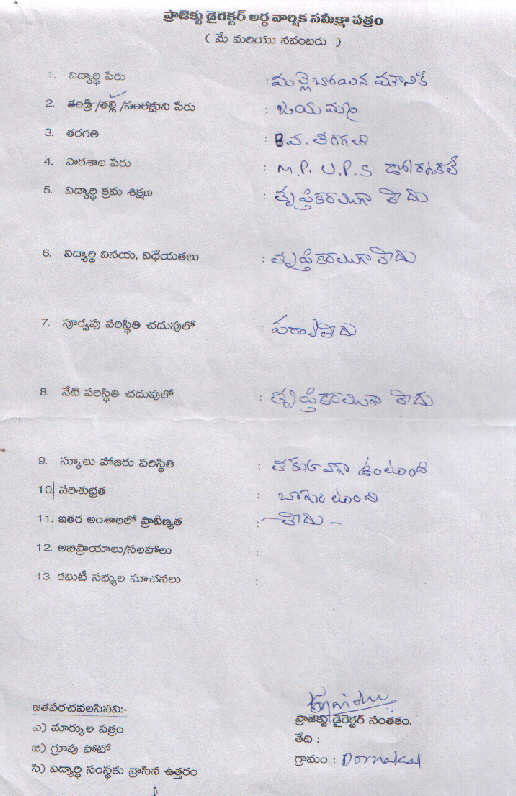 ప్రాజెక్టు డైరెక్టర్ అర్ధ వార్షిక సమీక్షా పత్రం
( మే మరియు నవంబరు )
1. విద్యార్థి పేరు :
2. తండ్రి/తల్లి/సంరక్షకుని పేరు :
3. తరగతి : 8వ. తరగతి
4. పాఠశాల పేరు : M.P. U.P.S
5. విద్యార్థి క్రమ శిక్షణ : తృప్తికరముగా లేదు
6. విద్యార్థి వినయ, విధేయతలు : తృప్తికరముగా లేదు
7. పూర్వపు పరిస్థితి చదువులో :
8. నేటి పరిస్థితి చదువులో : తృప్తికరముగా లేదు
9. స్కూలు హాజరు పరిస్థితి : తక్కువగా ఉంటుంది
10. పరిశుభ్రత : బాగుంటుంది
11. ఇతర అంశాలలో ప్రావీణ్యత : - లేదు -
12. అభిప్రాయాలు/సలహాలు :
13. కమిటీ సభ్యుల సూచనలు :
జతపరచవలసినవి:-
ఎ) మార్కుల పత్రం
బి) గ్రూపు ఫోటో
సి) విద్యార్థి సంస్థకు వ్రాసిన ఉత్తరం
ప్రాజెక్టు డైరెక్టర్ సంతకం.
తేది :
గ్రామం : Dornakal